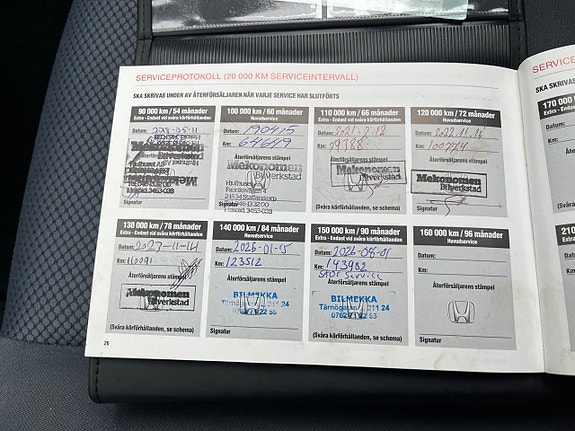 SERVICEPROTOKOLL (20 000 KM SERVICEINTERVALL)
SKA SKRIVAS UNDER AV ÅTERFÖRSÄLJAREN NÄR VARJE SERVICE HAR SLUTFÖRTS
90 000 km / 54 månader
Extra - Endast vid svåra körförhållanden
Datum:
Km:
Signatur
100 000 km / 60 månader
Huvudservice
Datum: 190415
Km: 64649
Återförsäljarens stämpel
Mekonomen
Bilverkstad
Signatur
110 000 km / 66 månader
Extra - Endast vid svåra körförhållanden
Datum: 2021-7-12
Km: 79388
Återförsäljarens stämpel
Mekonomen
Bilverkstad
120 000 km / 72 månader
Huvudservice
Datum: 2022.11.16
Km: 100774
Återförsäljarens stämpel
Mekonomen
Bilverkstad
Signatur
130 000 km / 78 månader
Extra - Endast vid svåra körförhållanden
Datum:
Km: 110091
Återförsäljarens stämpel
Mekonomen
Bilverkstad
(Svåra körförhållanden, se schema)
140 000 km / 84 månader
Huvudservice
Datum: 2026-01-15
Km: 123512
Återförsäljarens stämpel
BILMEKKA
Signatur
150 000 km / 90 månader
Extra - Endast vid svåra körförhållanden
Datum: 2026-08-01
Km: 143902
Stor Service
Återförsäljarens stämpel
BILMEKKA
(Svåra körförhållanden, se schema)
160 000 km / 96 månader
Huvudservice
Datum:
Km:
Återförsäljarens stämpel
Signatur
76
SERVICE
SKA SKRIVAS
170 000
Extra - End
Datum:
Km:
210
Extra
Datum:
Km: